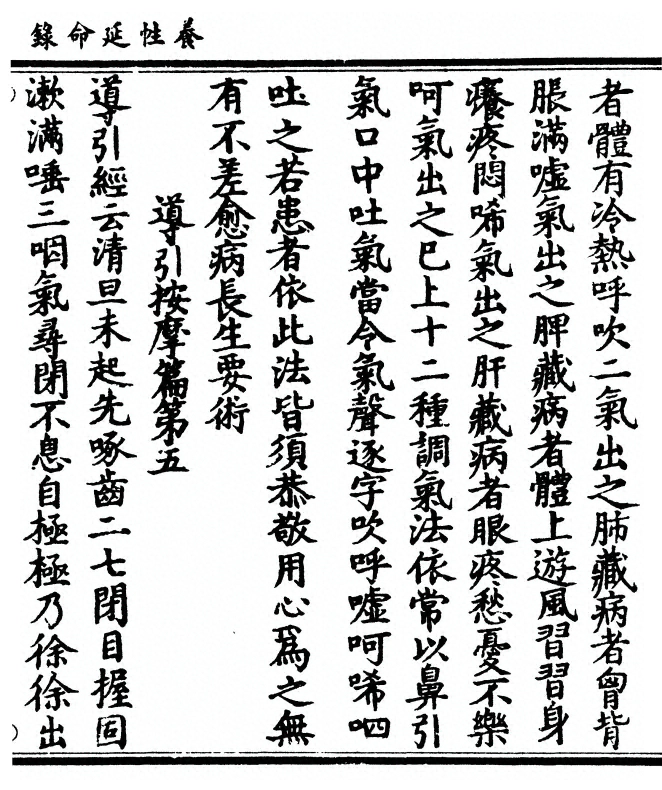 養性延命錄
者體有冷熱呼吹二氣出之肺藏病者胷背
脹滿噓氣出之脾藏病者體上遊風習習身
癢疼悶唏氣出之肝藏病者眼疼愁憂不樂
呵氣出之巳上十二種調氣法依常以鼻引
氣口中吐氣當令氣聲逐字吹呼噓呵唏呬
吐之若患者依此法皆須恭敬用心為之無
有不差愈病長生要術
導引按摩篇第五
導引經云清旦未起先啄齒二七閉目握固
漱滿唾三咽氣尋閉不息自極極乃徐徐出